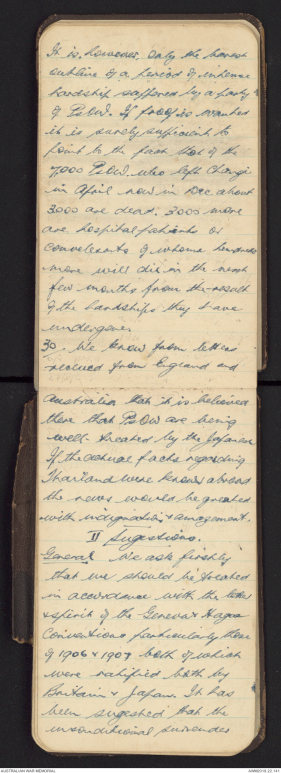 It is, however, only the barest
outline of a period of intense
hardship suffered by a party
of PsOW. If proof is wanted
it is surely sufficient to
point to the fact that of the
7,000 PsOW. who left Changi
in April now in Dec about
3000 are dead. 3000 more
are hospital patients or
convalescents of whome hundreds
more will die in the next
few months from the result
of the hardships they have
undergone.
30. We know from letters
received from England and
Australia that it is believed
there that PsOW are being
well treated by the Japanese
If the actual facts regarding
Thailand were known abroad
the news would be greeted
with indignation & amazement.
II Sugestions.
General We ask firstly
that we should be treated
in accordance with the letter
& spirit of the Geneva & Hague
Conventions particularly those
of 1906 & 1907 both of which
were ratified both by
Britain & Japan. It has
been sugested that the
unconditional surrender
AUSTRALIAN WAR MEMORIAL
AWM2018.22.141